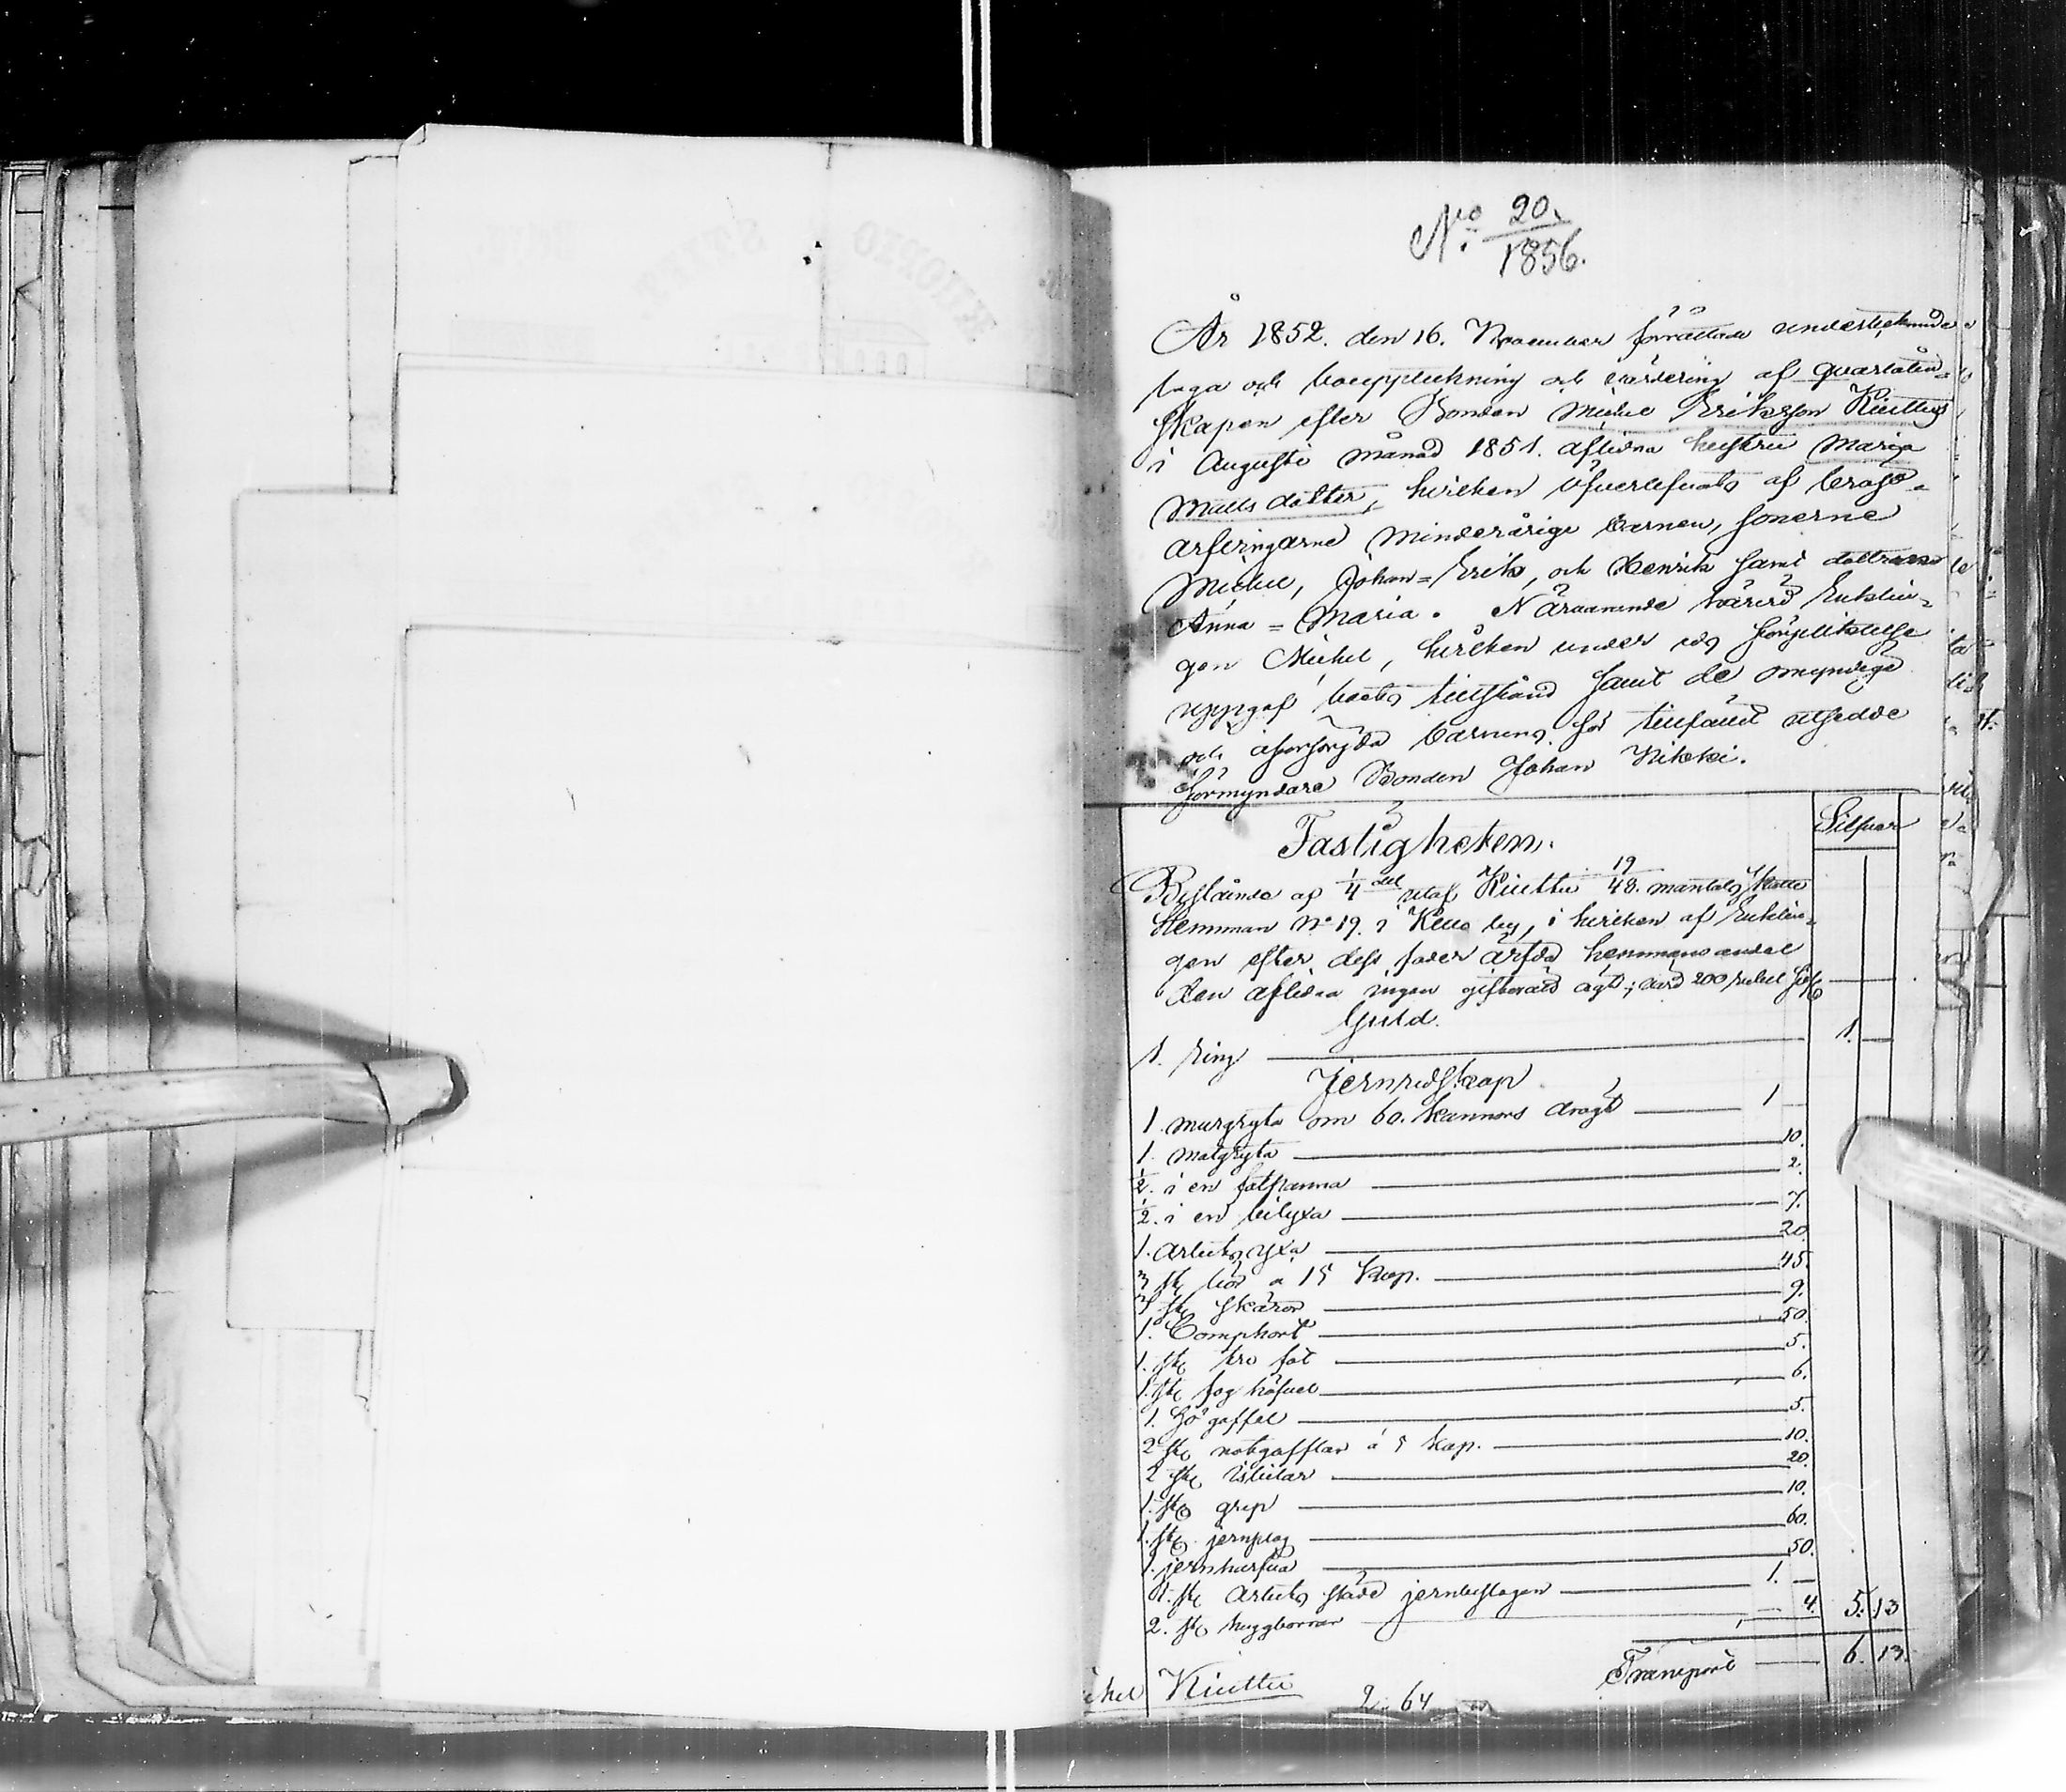 No 20.
1856.
År 1852. den 16. November förrättade undertecknade
laga och bouppteckning och värdering af qvarlåten=
skapen efter Bonden Michel Eriksson Kiuttus
i Augusti månad 1851. aflidna hustru Maria
Matts dotter, hvilken öfverlefvats af bröst=
arfvingarne minderårige barnen, sönerne
Michel, Johan=Erik, och Henrik samt dottren
Anna=Maria. Närvarande härvid Enklin=
gen Michel, hvilken under eds förpliktelse
uppgaf boets tillstånd samt de omyndige
och oförsörgda barnens för tillfället utsedde
förmyndare Bonden Johan Nikki.
Silfver
Fastigheten.
Bestående af 1/4 del utaf Kiuttu 19/48. mantals skatte
Hemman No 19. i by, i hvilken af Enklin=
gen efter dess fader ärfda hemmansandel
den aflidna ingen giftorätt ägt; värd 200 rubel silfr
Guld.
1. ring 1. —
Jernredskap
1. murgryta om 60. kannors dragt 1 —
1. matgryta 10.
1/2. i en 2.
1/2. i en bilyxa 7.
1. arbets yxa 20.
3 st lior a 15 kop. 45.
3 st skäror 9.
1. Comphort 50.
1. st tre fot 5.
1. st 6.
1. Högaffel 5.
2 st notgafflar á 5 kop. 10.
2 st isbilar 20.
1. st grep 10.
1. st jernplog 60.
1. jernharfva 50.
st arbets släde jernbeslagen 1. —
2. st huggborrar 4. 5. 13
Transport 6. 13.
Kiuttu
2. 64